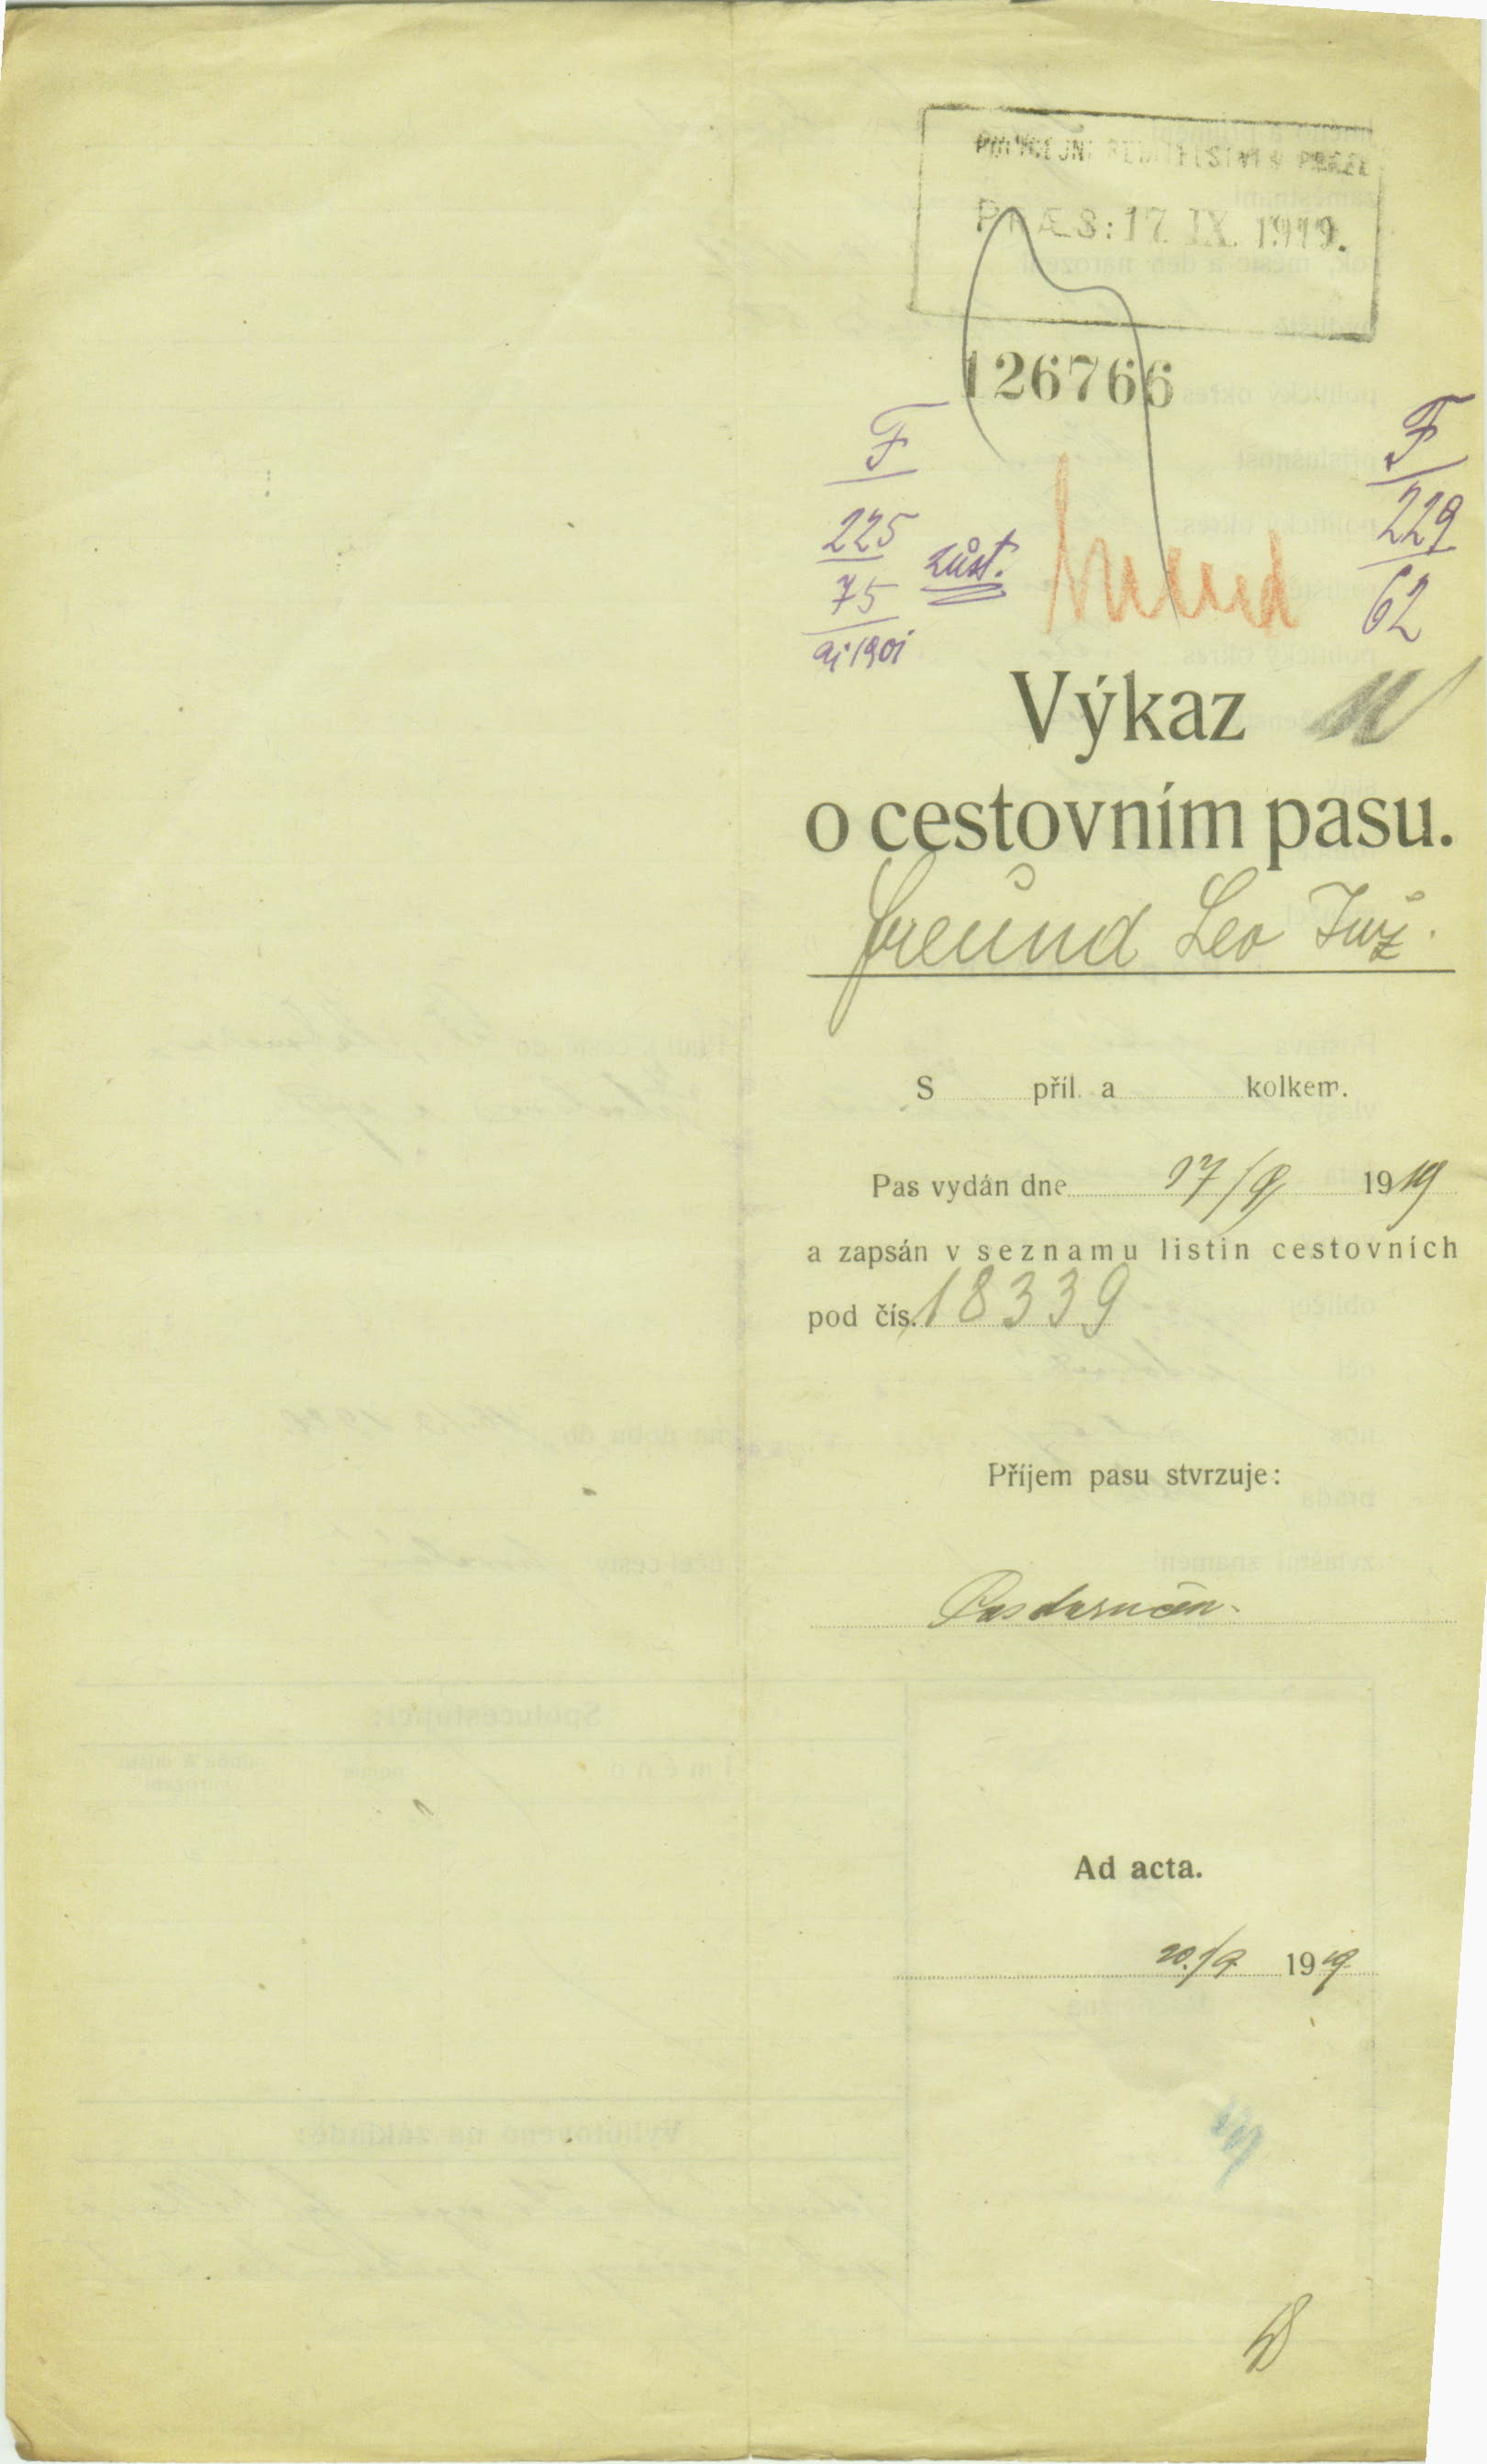 POLICEJNÍ ŘEDITELSTVÍ V PRAZE
PRÆS: 17. IX. 1919.
126766
F
225
75
F
229
62
zůst.
Výkaz
o cestovním pasu.
Freund Leo Inž.
S příl. a kolkem.
Pas vydán dne 17/9 1919
a zapsán v seznamu listin cestovních
pod čís. 18339
Příjem pasu stvrzuje:
Pas doručen.
Ad acta.
20./9. 1919